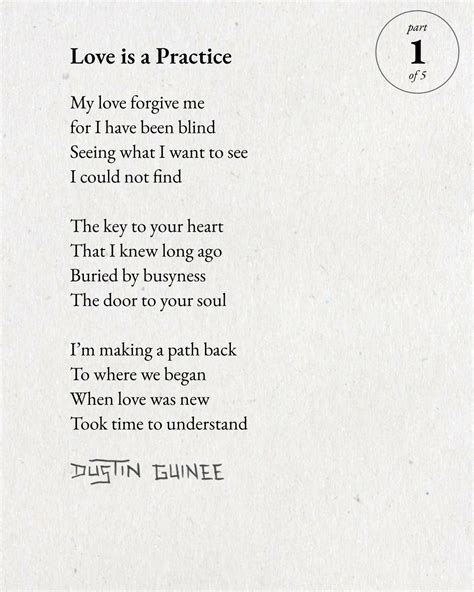 part
1
of 5
Love is a Practice
My love forgive me
for I have been blind
Seeing what I want to see
I could not find
The key to your heart
That I knew long ago
Buried by busyness
The door to your soul
I'm making a path back
To where we began
When love was new
Took time to understand
DUSTIN GUINEE